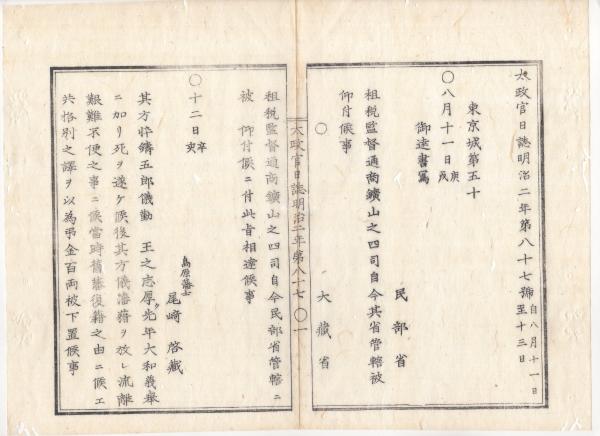 太政官日誌明治二年第八十七號 自八月十一日至十三日
東京城第五十
〇八月十一日庚戌
御達書寫
民部省
租税監督通商鑛山之四司自今其省管轄被
仰付候事
〇
大藏省
太政官日誌明治二年第八十七 〇一
租税監督通商鑛山之四司自今民部省管轄ニ
被 仰付候ニ付此旨相達候事
〇十二日辛亥
島原藩士
尾崎啓藏
其方忰鑄五郎儀勤 王之志厚ク先年大和義擧
ニ加リ死ヲ遂ケ候後其方儀藩籍ヲ放レ流離
艱難不便之事ニ候當時舊藩復籍之由ニ候ヱ
共格別之譯ヲ以為弔金百両被下置候事